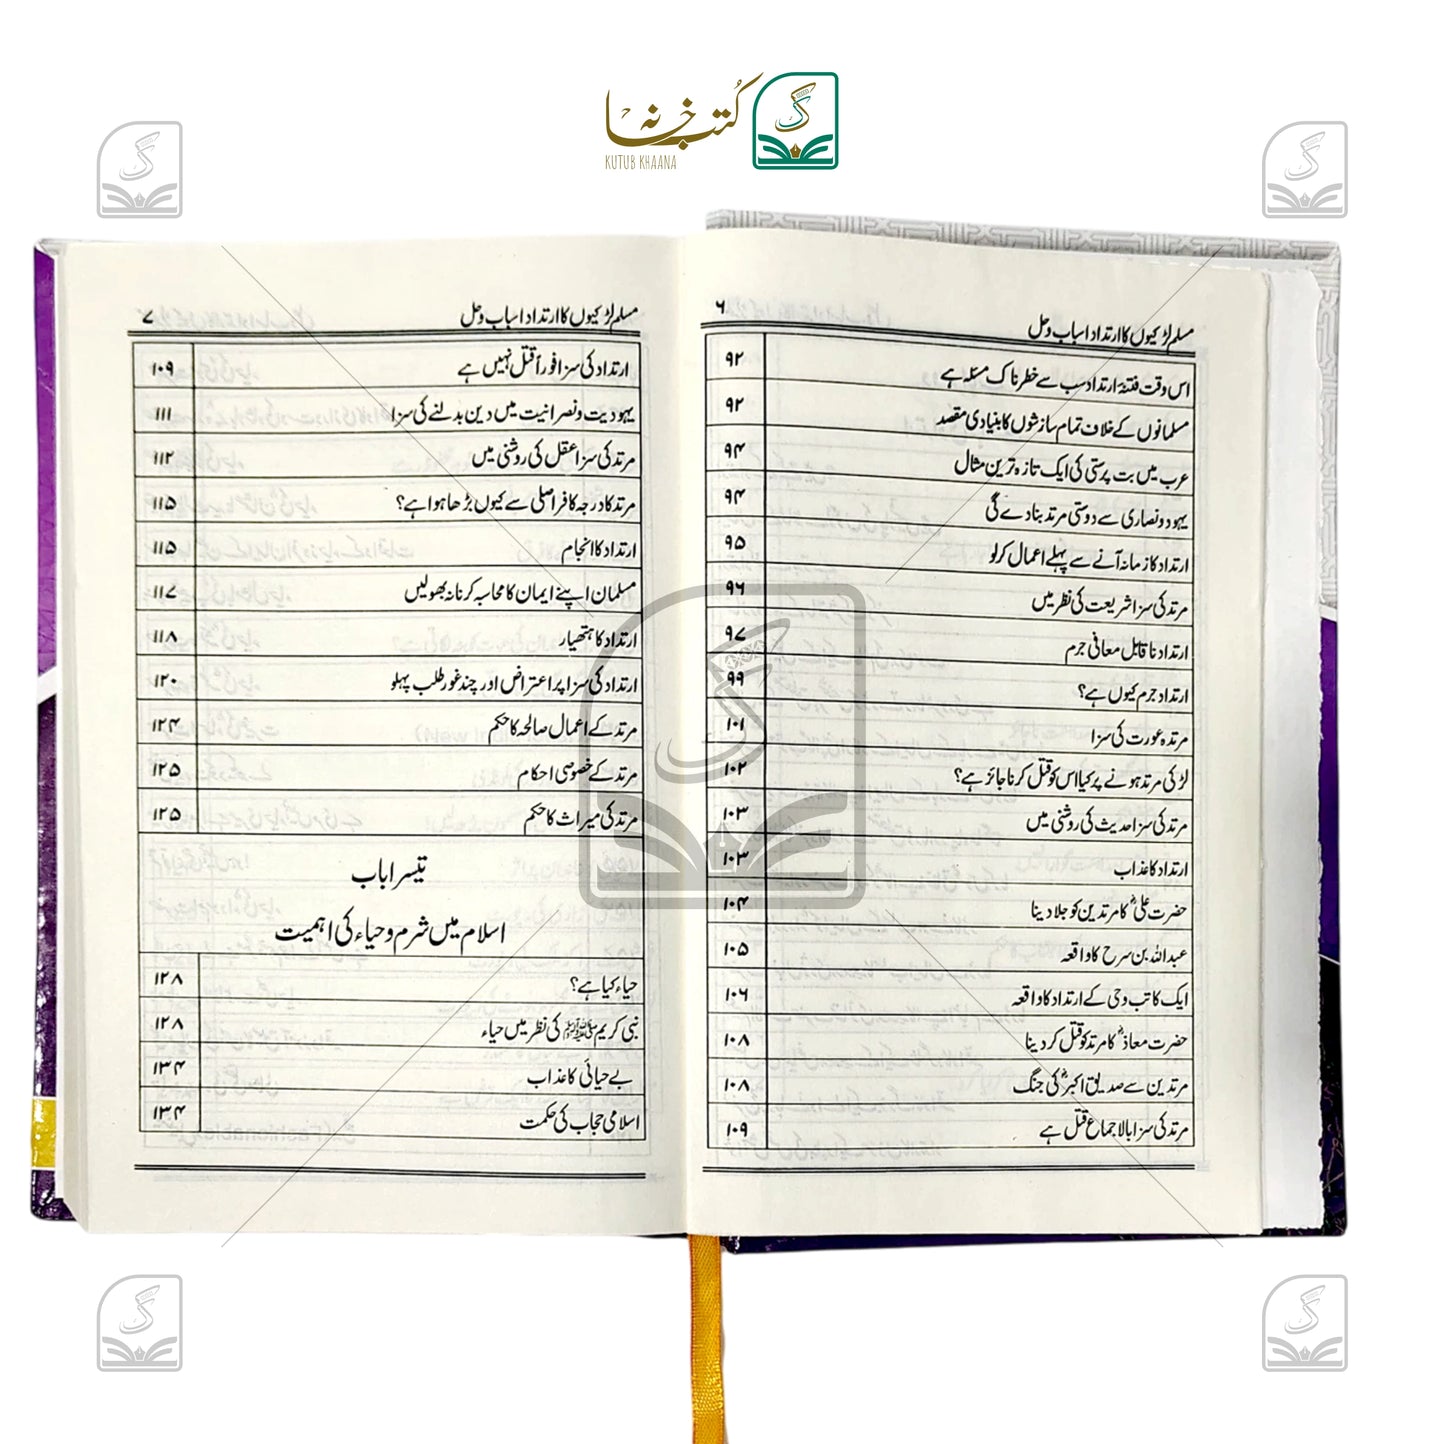 کتب خانہ
KUTUB KHAANA
۶ مسلم لڑکیوں کا ارتداد اسباب وحل
اس وقت فتنۂ ارتداد سب سے خطرناک مسئلہ ہے ۹۲
مسلمانوں کے خلاف تمام سازشوں کا بنیادی مقصد ۹۲
عرب میں بت پرستی کی ایک تازہ ترین مثال ۹۴
یہود و نصاری سے دوستی مرتد بنادے گی ۹۴
ارتداد کا زمانہ آنے سے پہلے اعمال کرلو ۹۵
مرتد کی سزا شریعت کی نظر میں ۹۶
ارتداد ناقابل معافی جرم ۹۷
ارتداد جرم کیوں ہے؟ ۹۹
مرتدہ عورت کی سزا ۱۰۱
لڑکی مرتد ہونے پر کیا اس کو قتل کرنا جائز ہے؟ ۱۰۲
مرتد کی سزا حدیث کی روشنی میں ۱۰۳
ارتداد کا عذاب ۱۰۳
حضرت علیؓ کا مرتدین کو جلا دینا ۱۰۴
عبداللہ بن سرح کا واقعہ ۱۰۵
ایک کاتب وحی کے ارتداد کا واقعہ ۱۰۶
حضرت معاذؓ کا مرتد کو قتل کر دینا ۱۰۸
مرتدین سے صدیق اکبرؓ کی جنگ ۱۰۸
مرتد کی سزا بالاجماع قتل ہے ۱۰۹
مسلم لڑکیوں کا ارتداد اسباب وحل ۷
ارتداد کی سزا فوراً قتل نہیں ہے ۱۰۹
یہودیت ونصرانیت میں دین بدلنے کی سزا ۱۱۱
مرتد کی سزا عقل کی روشنی میں ۱۱۲
مرتد کا درجہ کافر اصلی سے کیوں بڑھا ہوا ہے؟ ۱۱۵
ارتداد کا انجام ۱۱۵
مسلمان اپنے ایمان کا محاسبہ کرنا نہ بھولیں ۱۱۷
ارتداد کا ہتھیار ۱۱۸
ارتداد کی سزا پر اعتراض اور چند غور طلب پہلو ۱۲۰
مرتد کے اعمال صالحہ کا حکم ۱۲۴
مرتد کے خصوصی احکام ۱۲۵
مرتد کی میراث کا حکم ۱۲۵
تیسرا باب
اسلام میں شرم و حیاء کی اہمیت
حیاء کیا ہے؟ ۱۲۸
نبی کریم ﷺ کی نظر میں حیاء ۱۲۸
بے حیائی کا عذاب ۱۳۴
اسلامی حجاب کی حکمت ۱۳۴